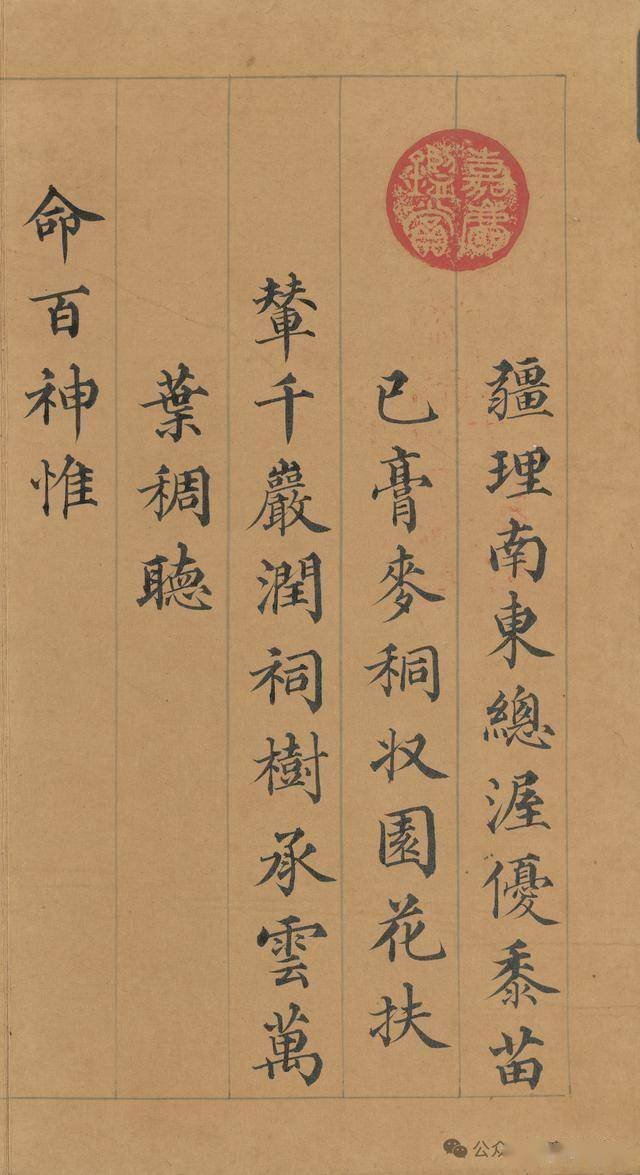 嘉慶鑑賞
疆理南東總渥優黍苗
已膏麥秱収園花扶
輦千巖潤祠樹承雲萬
葉稠聽
命百神惟
公众